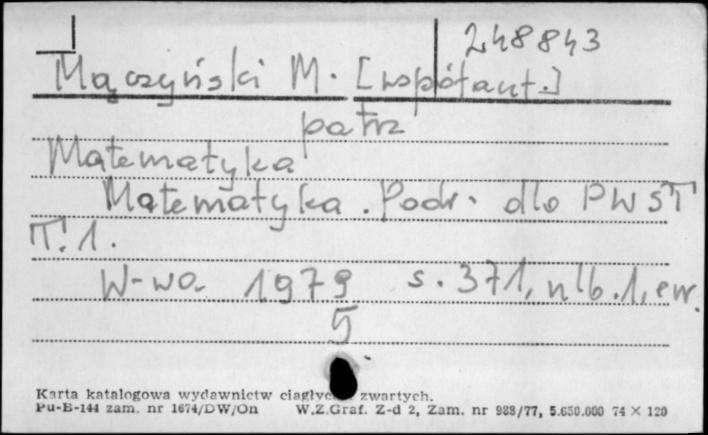 248843
Mączyński M. [współaut.]
patrz
Matematyka
Matematyka. Podr. dla PWST
T. 1.
W-wa 1979 s. 371, nlb. 1, err.
5
Karta katalogowa wydawnictw ciągłych zwartych.
Pu-B-144 zam. nr 1674/DW/On W.Z.Graf. Z-d 2, Zam. nr 988/77, 5.650.000 74 × 120